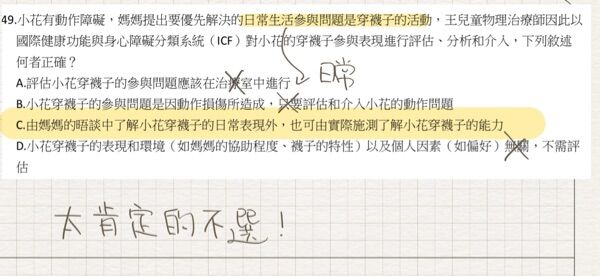 49.小花有動作障礙，媽媽提出要優先解決的日常生活參與問題是穿襪子的活動，王兒童物理治療師因此以
國際健康功能與身心障礙分類系統（ICF）對小花的穿襪子參與表現進行評估、分析和介入，下列敘述
何者正確？
A.評估小花穿襪子的參與問題應該在治療室中進行
日常
B.小花穿襪子的參與問題是因動作損傷所造成，只要評估和介入小花的動作問題
C.由媽媽的晤談中了解小花穿襪子的日常表現外，也可由實際施測了解小花穿襪子的能力
D.小花穿襪子的表現和環境（如媽媽的協助程度、襪子的特性）以及個人因素（如偏好）無關，不需評
估
太肯定的不選！